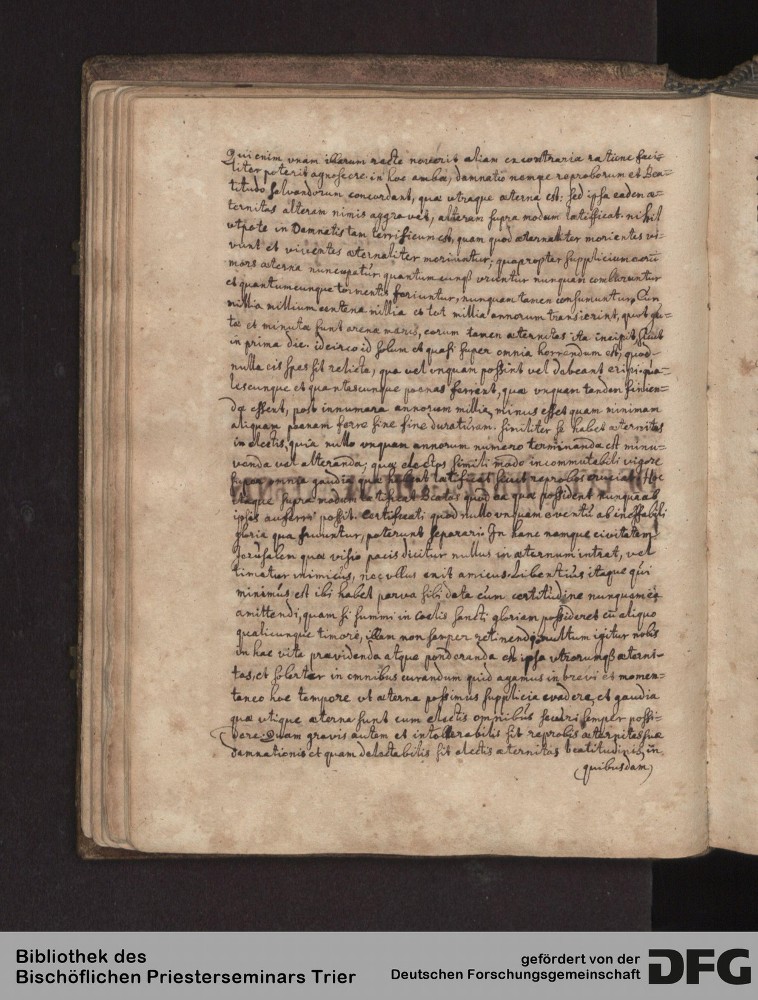 Qui enim unam illarum recte noverit aliam ex contraria ratione faci=
liter poterit agnoscere. in hoc ambæ, damnatio nempe reproborum et Bea=
titudo salvandorum concordant, quæ utraque æterna est: sed ipsa eadem æ=
ternitas alteram nimis aggravat, alteram supra modum lætificat. nihil
utpote in Damnatis tam terrificum est, quam quod æternaliter morientes vi=
vunt et viventes æternaliter moriuntur; quapropter supplicium eorum
mors æterna nuncupatur. quantumcunque uruntur nunquam comburuntur
et quantumcunque tormentis feriuntur, nunquam tamen consumuntur. Cum
millia millium centena millia et tot millia annorum transierint, quot gut=
tæ et minuta sunt arena maris, eorum tamen æternitas ita incipit, sicut
in prima die. idcirco id solum et quasi super omnia horrendum est, quod
nulla eis spes sit relicta, qua vel unquam possint vel debeant eripi. qua=
lescunque et quantascunque poenas ferrent, quæ unquam tandem finien=
dæ essent, post innumera annorum millia, minus esset quam minimam
aliquam poenam ferre sine fine duraturam. similiter se habet æternitas
in electis, quia nullo unquam annorum numero terminanda est minu=
enda vel alteranda, quæ electos simili modo incommutabili vigore
super omnia gaudia quæ habent lætificat sicut reprobos cruciat. Hoc
itaque supra modum lætificat Beatos quod ea quæ possident nunquam ab
ipsis auferri possit. certificati quod nullo unquam eventu ab ineffabili
gloria qua fruuntur, poterunt separari. In hanc namque civitatem
Jerusalem quæ visio pacis dicitur nullus in æternum intrat, vel
timetur inimicus, nec ullus exit amicus. Libentius itaque qui
minimus est ibi habet parva sibi data cum certitudine nunquam ea
amittendi, quam si summi in coelis sancti gloriam possideret cum aliquo
qualicunque timore, illam non semper retinendi. multum igitur nobis
in hac vita prævidenda atque ponderanda est ipsa utrorumque æterni=
tas, et solerter in omnibus curandum quid agamus in brevi et momen=
taneo hoc tempore ut æterna possimus supplicia evadere, et gaudia
quæ utique æterna sunt cum electis omnibus securi semper possi=
dere. Quam gravis autem et intollerabilis sit reprobis æternitas suæ
damnationis et quam delectabilis sit electis æternitas beatitudinis, in
quibusdam
Bibliothek des
Bischöflichen Priesterseminars Trier
gefördert von der
Deutschen Forschungsgemeinschaft
DFG